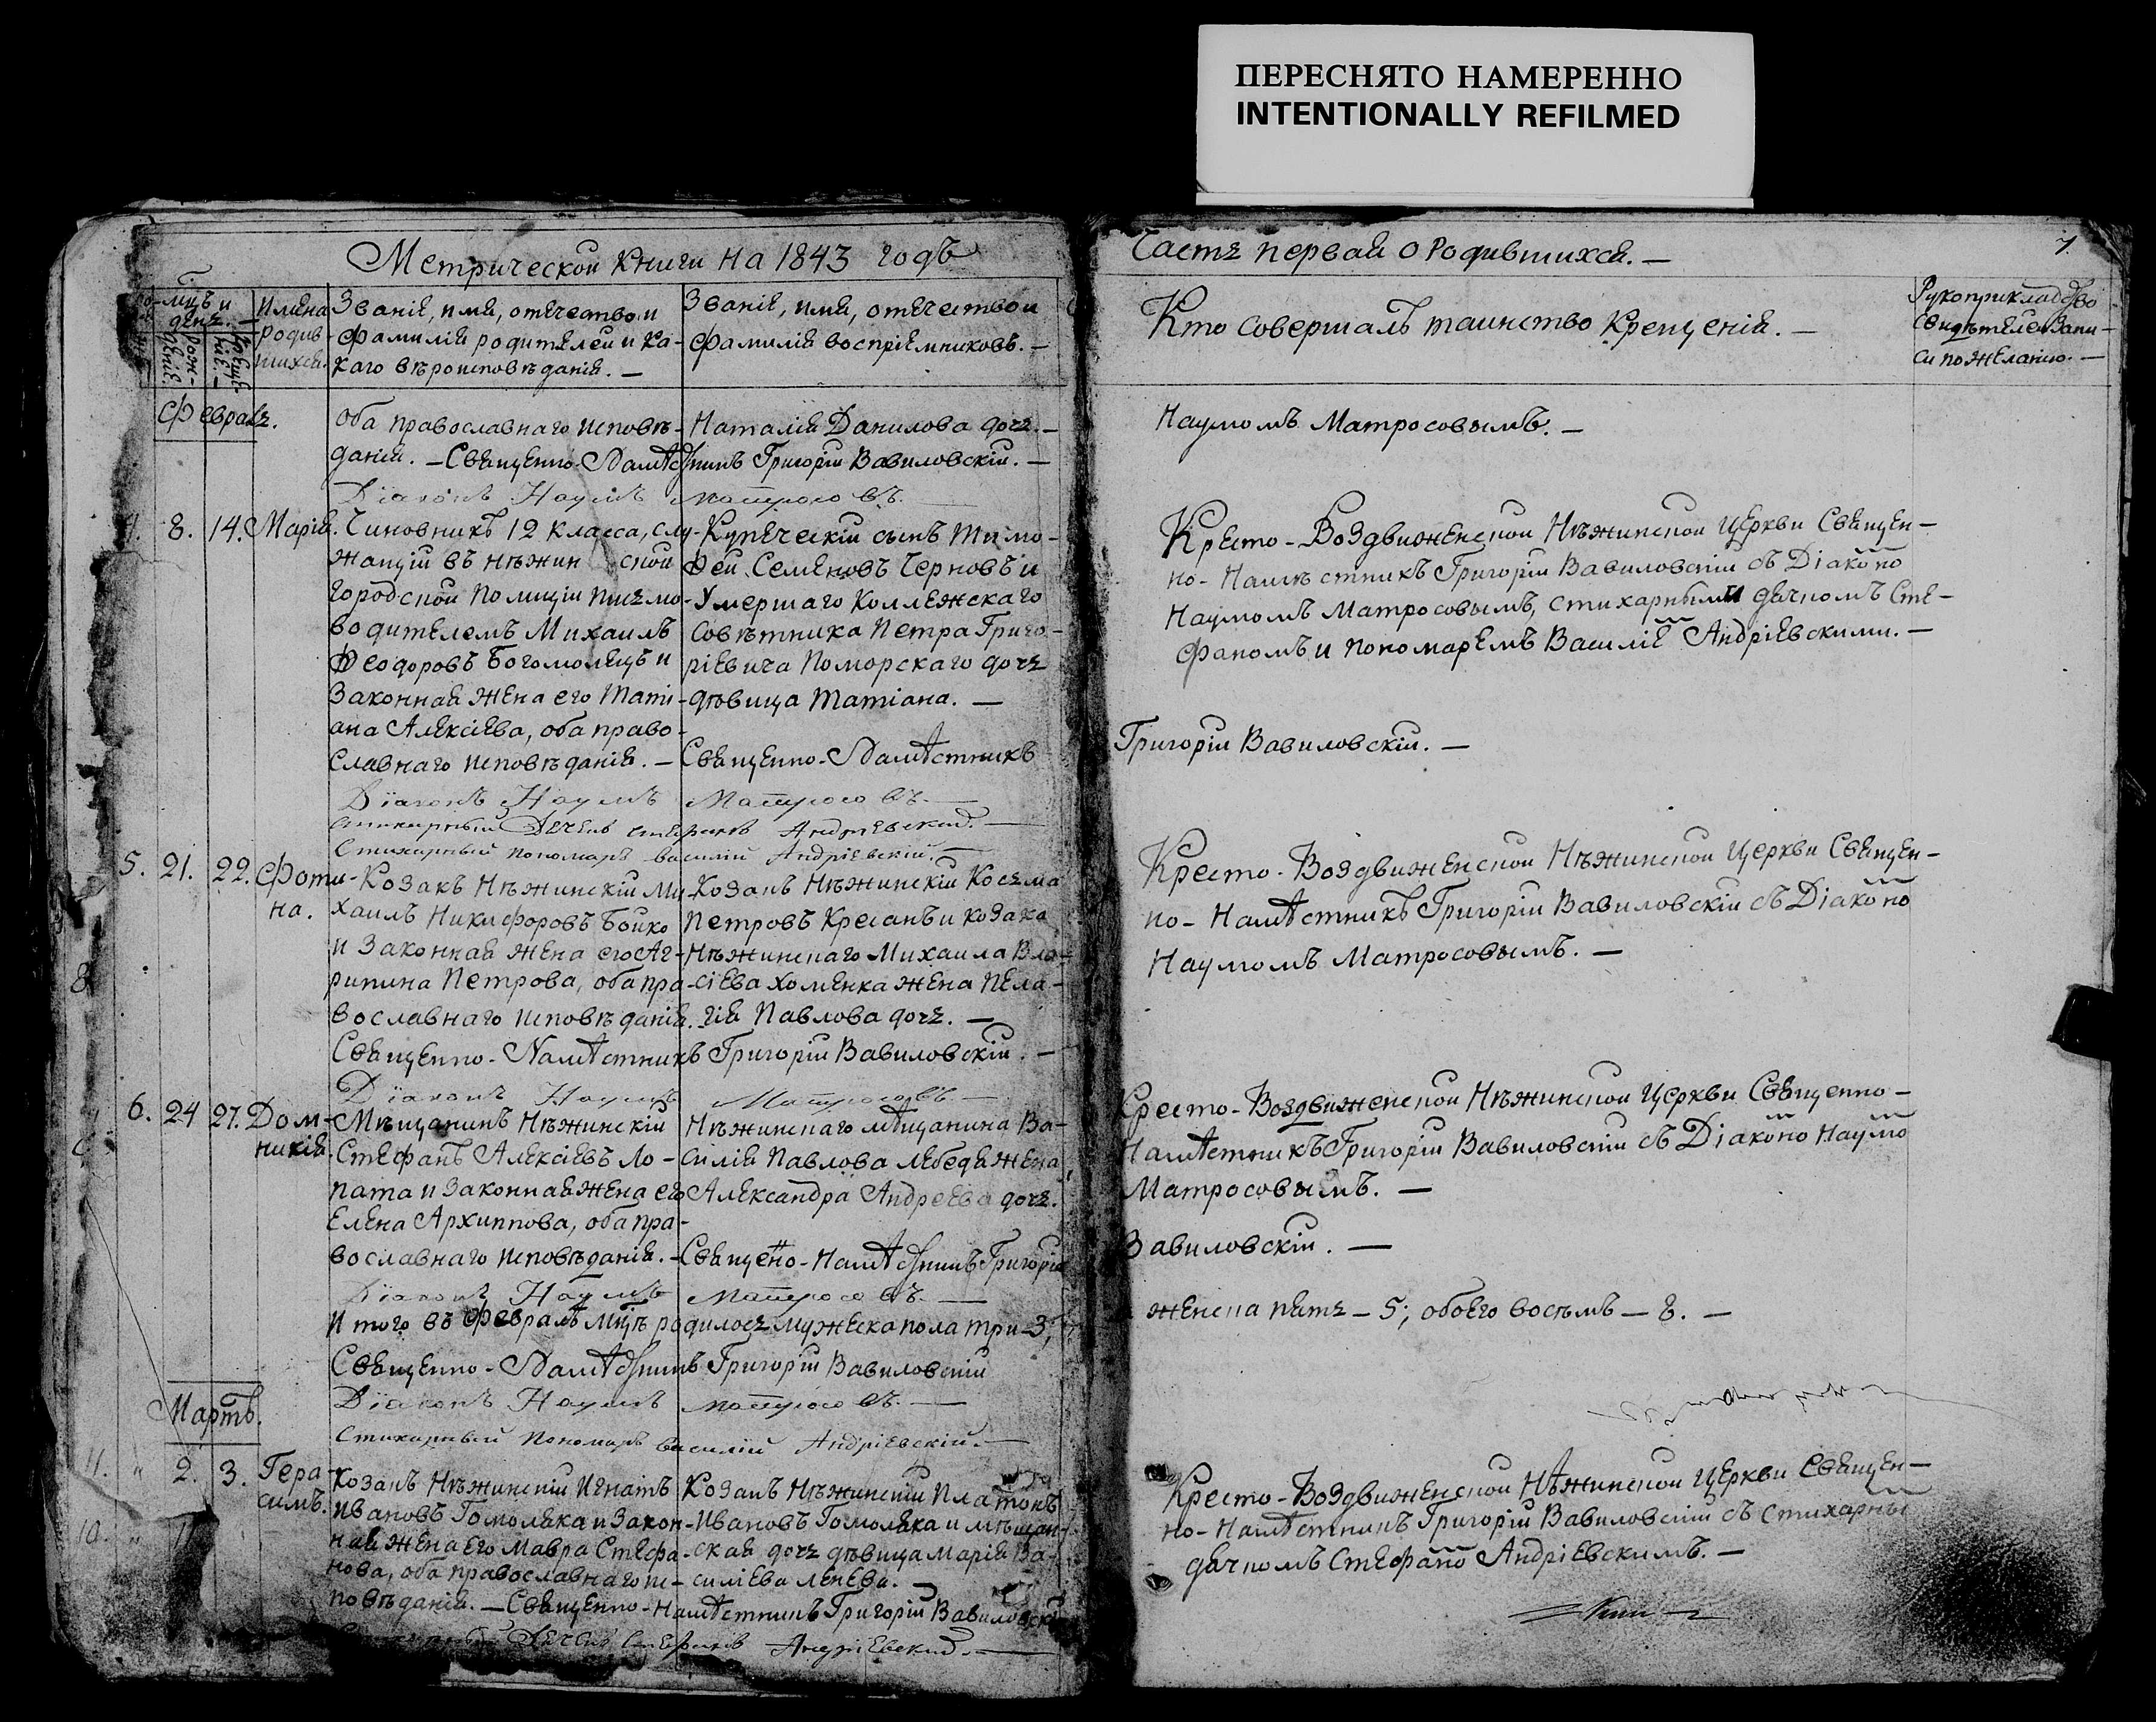 ПЕРЕСНЯТО НАМЕРЕННО
INTENTIONALLY REFILMED
Метрической книги на 1843 годъ
мцъ и день.
Имена родив шихся.
Званіе, имя, отечество и
фамилія родителей и ка-
каго вѣроисповѣданія. —
Званіе, имя, отечество и
фамилія воспріемниковъ. —
Февраль.
оба православнаго исповѣ-
данія. — Священно-Намѣстникъ Григорій Вавиловскій. —
Наталія Данилова дочь. —
Діаконъ Наумъ Матросовъ.
4. 8. 14. Марія.
Чиновникъ 12 класса, слу-
жащій въ нѣжинской
городской Полиціи письмо-
водителемъ Михаилъ
Ѳеодоровъ Богомолецъ и
законная жена его Таті-
ана Алексіева, оба право-
славнаго исповѣданія. — Священно-Намѣстникъ
Купеческій сынъ Тимо-
ѳей Семеновъ Черновъ и
умершаго Коллежскаго
совѣтника Петра Григо-
ріевича Поморскаго дочь
дѣвица Татіана. —
Діаконъ Наумъ Матросовъ. —
Стихарный Дячекъ Стефанъ Андріевскій. —
Стихарный пономарь василій Андріевскій. —
5. 21. 22. Фоти-
на.
Козакъ Нѣжинскій Ми-
хаилъ Никифоровъ Бойко
и законная жена его Аг-
рипина Петрова, оба пра-
вославнаго исповѣданія.
Козакъ Нѣжинскій Козьма
Петровъ Кресанъ и козака
Нѣжинскаго Михаила Вла-
сіева Хоменка жена Пела-
гія Павлова дочь. —
Священно-Намѣстникъ Григорій Вавиловскій. —
Діаконъ Наумъ Матросовъ. —
6. 24 27. Дом-
никія.
Мѣщанинъ Нѣжинскій
Стефанъ Алексіевъ Ло-
пата и законная жена его
Елена Архиппова, оба пра-
вославнаго исповѣданія. — Священно-Намѣстникъ Григорій
Нѣжинскаго мѣщанина Ва-
силія Павлова Лебедя жена
Александра Андреева дочь.
Діаконъ Наумъ Матросовъ. —
Итого въ Февралѣ мцѣ родилось мужеска пола три — 3;
Священно-Намѣстникъ Григорій Вавиловскій
Діаконъ Наумъ Матросовъ. —
Стихарный Пономарь василій Андріевскій. —
Мартъ.
11. " 2. 3. Гера-
симъ.
Козакъ Нѣжинскій Игнатъ
Ивановъ Гомоляка и закон-
ная жена его Мавра Стефа-
нова, оба православнаго ис-
повѣданія. — Священно-Намѣстникъ Григорій Вавиловскій
Козакъ Нѣжинскій Платонъ
Ивановъ Гомоляка и мѣщан-
ская дочь дѣвица Марія Ва-
силіева Ленева. —
10. "
Дячекъ Стефанъ Андріевскій. —
Часть первая о Родившихся. —
7.
Кто совершалъ таинство крещенія. —
Рукоприкладство
свидѣтелей запи-
си по желанію. —
Наумомъ Матросовымъ. —
Кресто-Воздвиженской Нѣжинской Церкви Священ-
но-Намѣстникъ Григорій Вавиловскій съ Діаконо
Наумомъ Матросовымъ, стихарными дячкомъ Сте-
фаномъ и пономаремъ Василіе Андріевскими. —
Григорій Вавиловскій. —
Кресто-Воздвиженской Нѣжинской Церкви Священ-
но-Намѣстникъ Григорій Вавиловскій съ Діаконо
Наумомъ Матросовымъ. —
Кресто-Воздвиженской Нѣжинской Церкви Священно-
Намѣстникъ Григорій Вавиловскій съ Діаконо Наумо
Матросовымъ. —
Вавиловскій. —
женска пять — 5; обоего восьмъ — 8. —
Кресто-Воздвиженской Нѣжинской Церкви Священ-
но-Намѣстникъ Григорій Вавиловскій съ стихарны
дячкомъ Стефано Андріевскимъ. —